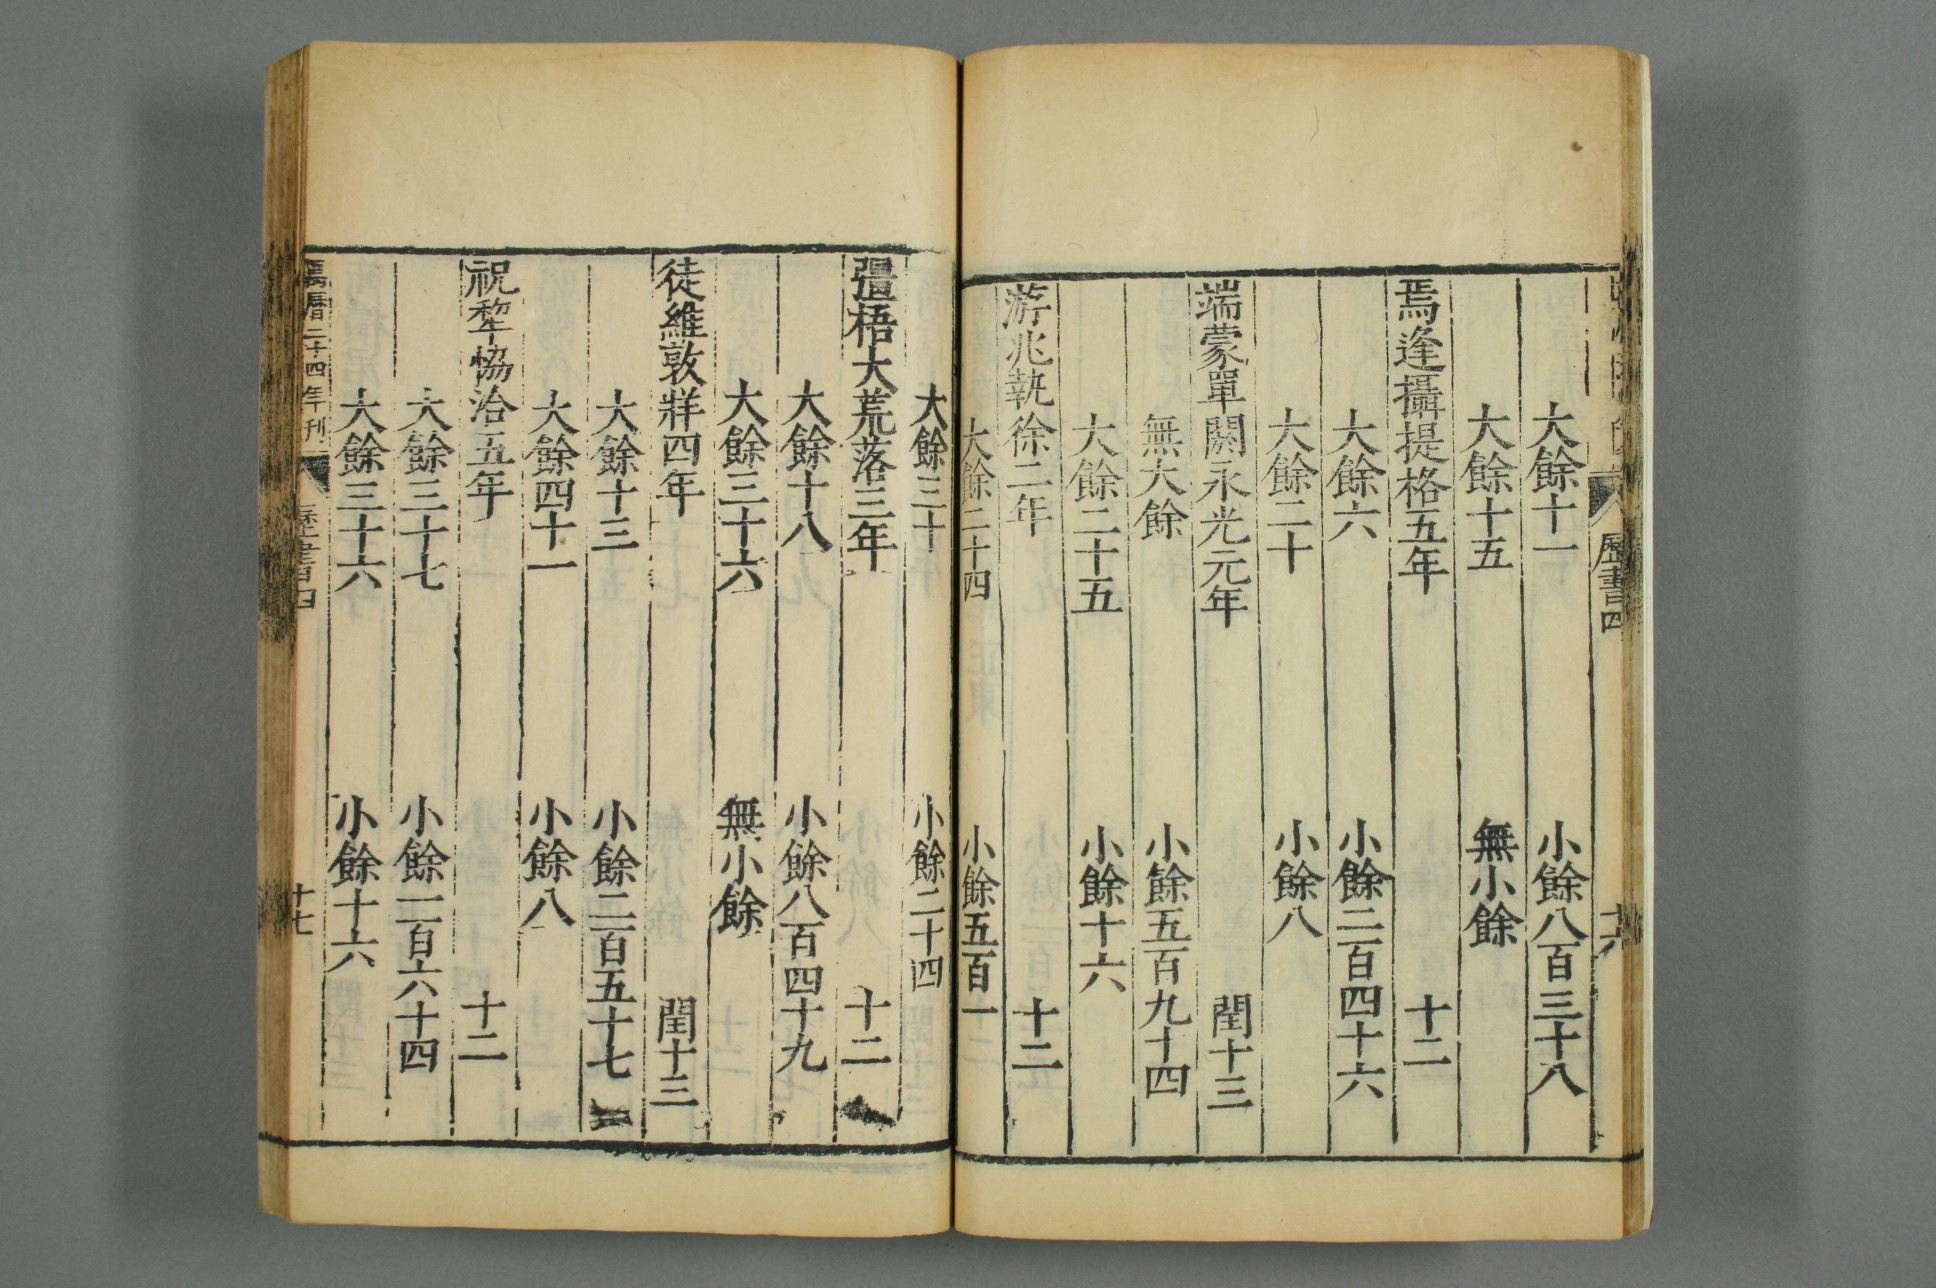 歷書四
大餘十一 小餘八百三十八
大餘十五 無小餘
焉逢攝提格五年 十二
大餘六 小餘二百四十六
大餘二十 小餘八
端蒙單閼永光元年 閏十三
無大餘 小餘五百九十四
大餘二十五 小餘十六
游兆執徐二年 十二
大餘二十四 小餘五百一
大餘三十 小餘二十四
彊梧大荒落三年 十二
大餘十八 小餘八百四十九
大餘三十六 無小餘
徒維敦牂四年 閏十三
大餘十三 小餘二百五十七
大餘四十一 小餘八
祝犂協洽五年 十二
大餘三十七 小餘一百六十四
大餘三十六 小餘十六
萬曆二十四年刊 歷書四 十七